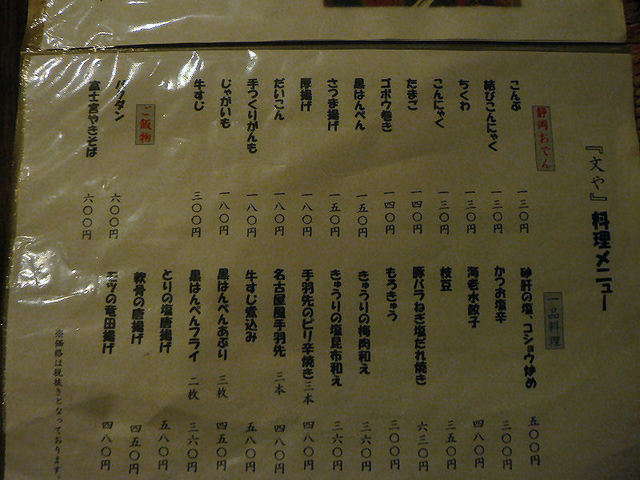 『文や』料理メニュー
静岡おでん
こんぶ 一三〇円
結びこんにゃく 一三〇円
ちくわ 一三〇円
こんにゃく 一三〇円
たまご 一四〇円
ゴボウ巻き 一四〇円
黒はんぺん 一五〇円
さつま揚げ 一五〇円
厚揚げ 一八〇円
だいこん 一八〇円
手つくりがんも 一八〇円
じゃがいも 一八〇円
牛すじ 三〇〇円
ご飯物
六〇〇円
富士宮やきそば 六〇〇円
一品料理
砂肝の塩、コショウ炒め 五〇〇円
かつお塩辛 三〇〇円
海老水餃子 四八〇円
枝豆 三五〇円
豚バラねぎ塩だれ焼き 六三〇円
もろきゅう 三〇〇円
きゅうりの梅肉和え 三六〇円
きゅうりの塩昆布和え 三六〇円
手羽先のピリ辛焼き 三本 四八〇円
名古屋風手羽先 三本 四八〇円
牛すじ煮込み 五八〇円
黒はんぺんあぶり 三枚 四五〇円
黒はんぺんフライ 二枚 三六〇円
とりの塩唐揚げ 五八〇円
軟骨の唐揚げ 四五〇円
の竜田揚げ 四八〇円
※価格は税抜きとなっております。